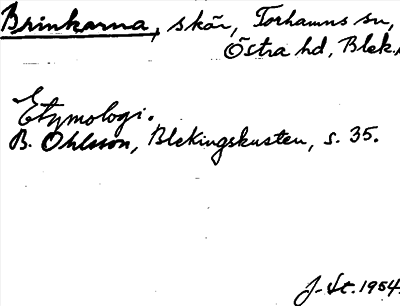 Brinkarna, skär, Torhamns sn,
Östra hd, Blek.
Etymologi.
B. Ohlsson, Blekingskusten, s. 35.
J. St. 1954.